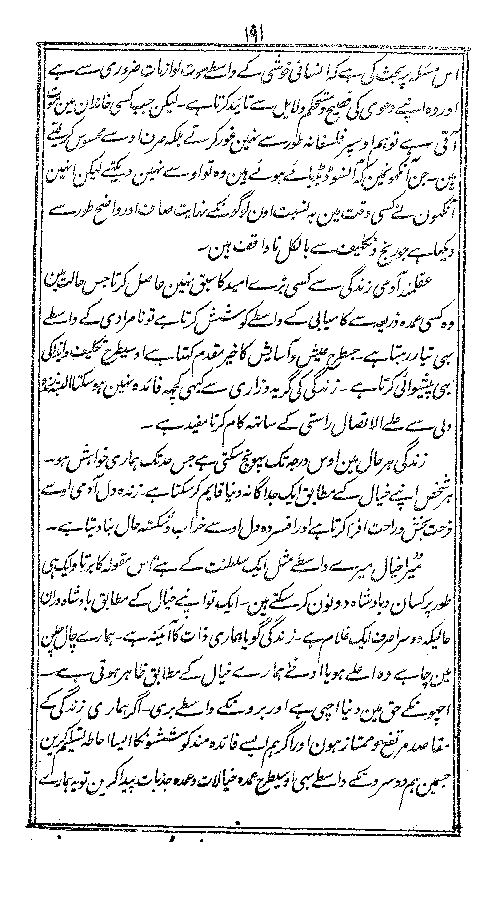 ۱۹۱
اس مسئلہ پر بحث کی ہے کہ انسانی خوشی کے واسطے موت لوازمات ضروری سے ہے
اور وہ اپنے دعوی کی صحیح و مستحکم دلایل سے تائید کرتا ہے۔ لیکن جب کسی خاندان مین موت
آتی ہے تو ہم اوسپر فلسفانہ طور سے نہین غور کرتے بلکہ صرف اوسے محسوس کرتے
ہین۔ جن آنکھونمین کہ آنسو ڈبڈبائے ہوئے ہین وہ تو اوسے نہین دیکہتے لیکن اُنہین
آنکھون نے کسی وقت مین بہ نسبت اون لوگونکے نہایت صاف اور واضح طور سے
دیکہا ہے جو رنج و تکلیف سے بالکل ناواقف ہین۔
عقلمند آدمی زندگی سے کسی بڑے امید کا سبق نہین حاصل کرتا جس حالت مین
وہ کسی عمدہ ذریعہ سے کامیابی کے واسطے کوشش کرتا ہے تو نامرادی کے واسطے
بہی تیار رہتا ہے۔ جسطرح عیش و آسایش کا خیر مقدم کہتا ہے اوسیطرح تکلیف و ایذا کی
بہی پیشوائی کرتا ہے۔ زندگی کی گریہ و زاری سے کبہی کچہہ فائدہ نہین ہوسکتا البتہ خندہ
دلی سے علے الاتصال راستی کے ساتہہ کام کرنا مفید ہے۔
زندگی ہر حال مین اوس درجہ تک پہونچ سکتی ہے جس حد تک ہماری خواہش ہو۔
ہر شخص اپنے خیال کے مطابق ایک جداگانہ دنیا قایم کرسکتا ہے۔ زندہ دل آدمی اوسے
فرحت بخش و راحت افزا کرتا ہے اور افسردہ دل اوسے خراب و شکستہ حال بنا دیتا ہے۔
میرا خیال میرے واسطے مثل ایک سلطنت کے ہے" اس مقولہ کا برتاو ایک ہی
طور پر کسان و بادشاہ دونون کرسکتے ہین۔ ایک تو اپنے خیال کے مطابق بادشاہ دران
حالیکہ دوسرا صرف ایک غلام ہے۔ زندگی گویا ہماری ذات کا آئینہ ہے۔ ہمارے چال چلن
مین چاہے وہ اعلے ہو یا ادنے ہمارے خیال کے مطابق ظاہر ہوتی ہے۔
اچہونکے حق مین دنیا اچہی ہے اور برونکے واسطے بری۔ اگر ہماری زندگی کے
مقاصد مرتفع و ممتاز ہون اور اگر ہم ایسے فائدہ مند کوششونکا ایسا احاطہ تسلیم کرین
جسمین ہم دوسرونکے واسطے بہی اوسیطرح عمدہ خیالات و عمدہ جذبات پیدا کرین تو یہ ہمارے